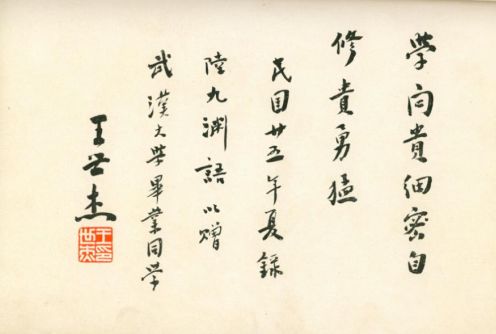 學問貴細密自
修貴勇猛
民國廿五年夏錄
陸九渊語以贈
武漢大學畢業同学
王世杰
王世杰印